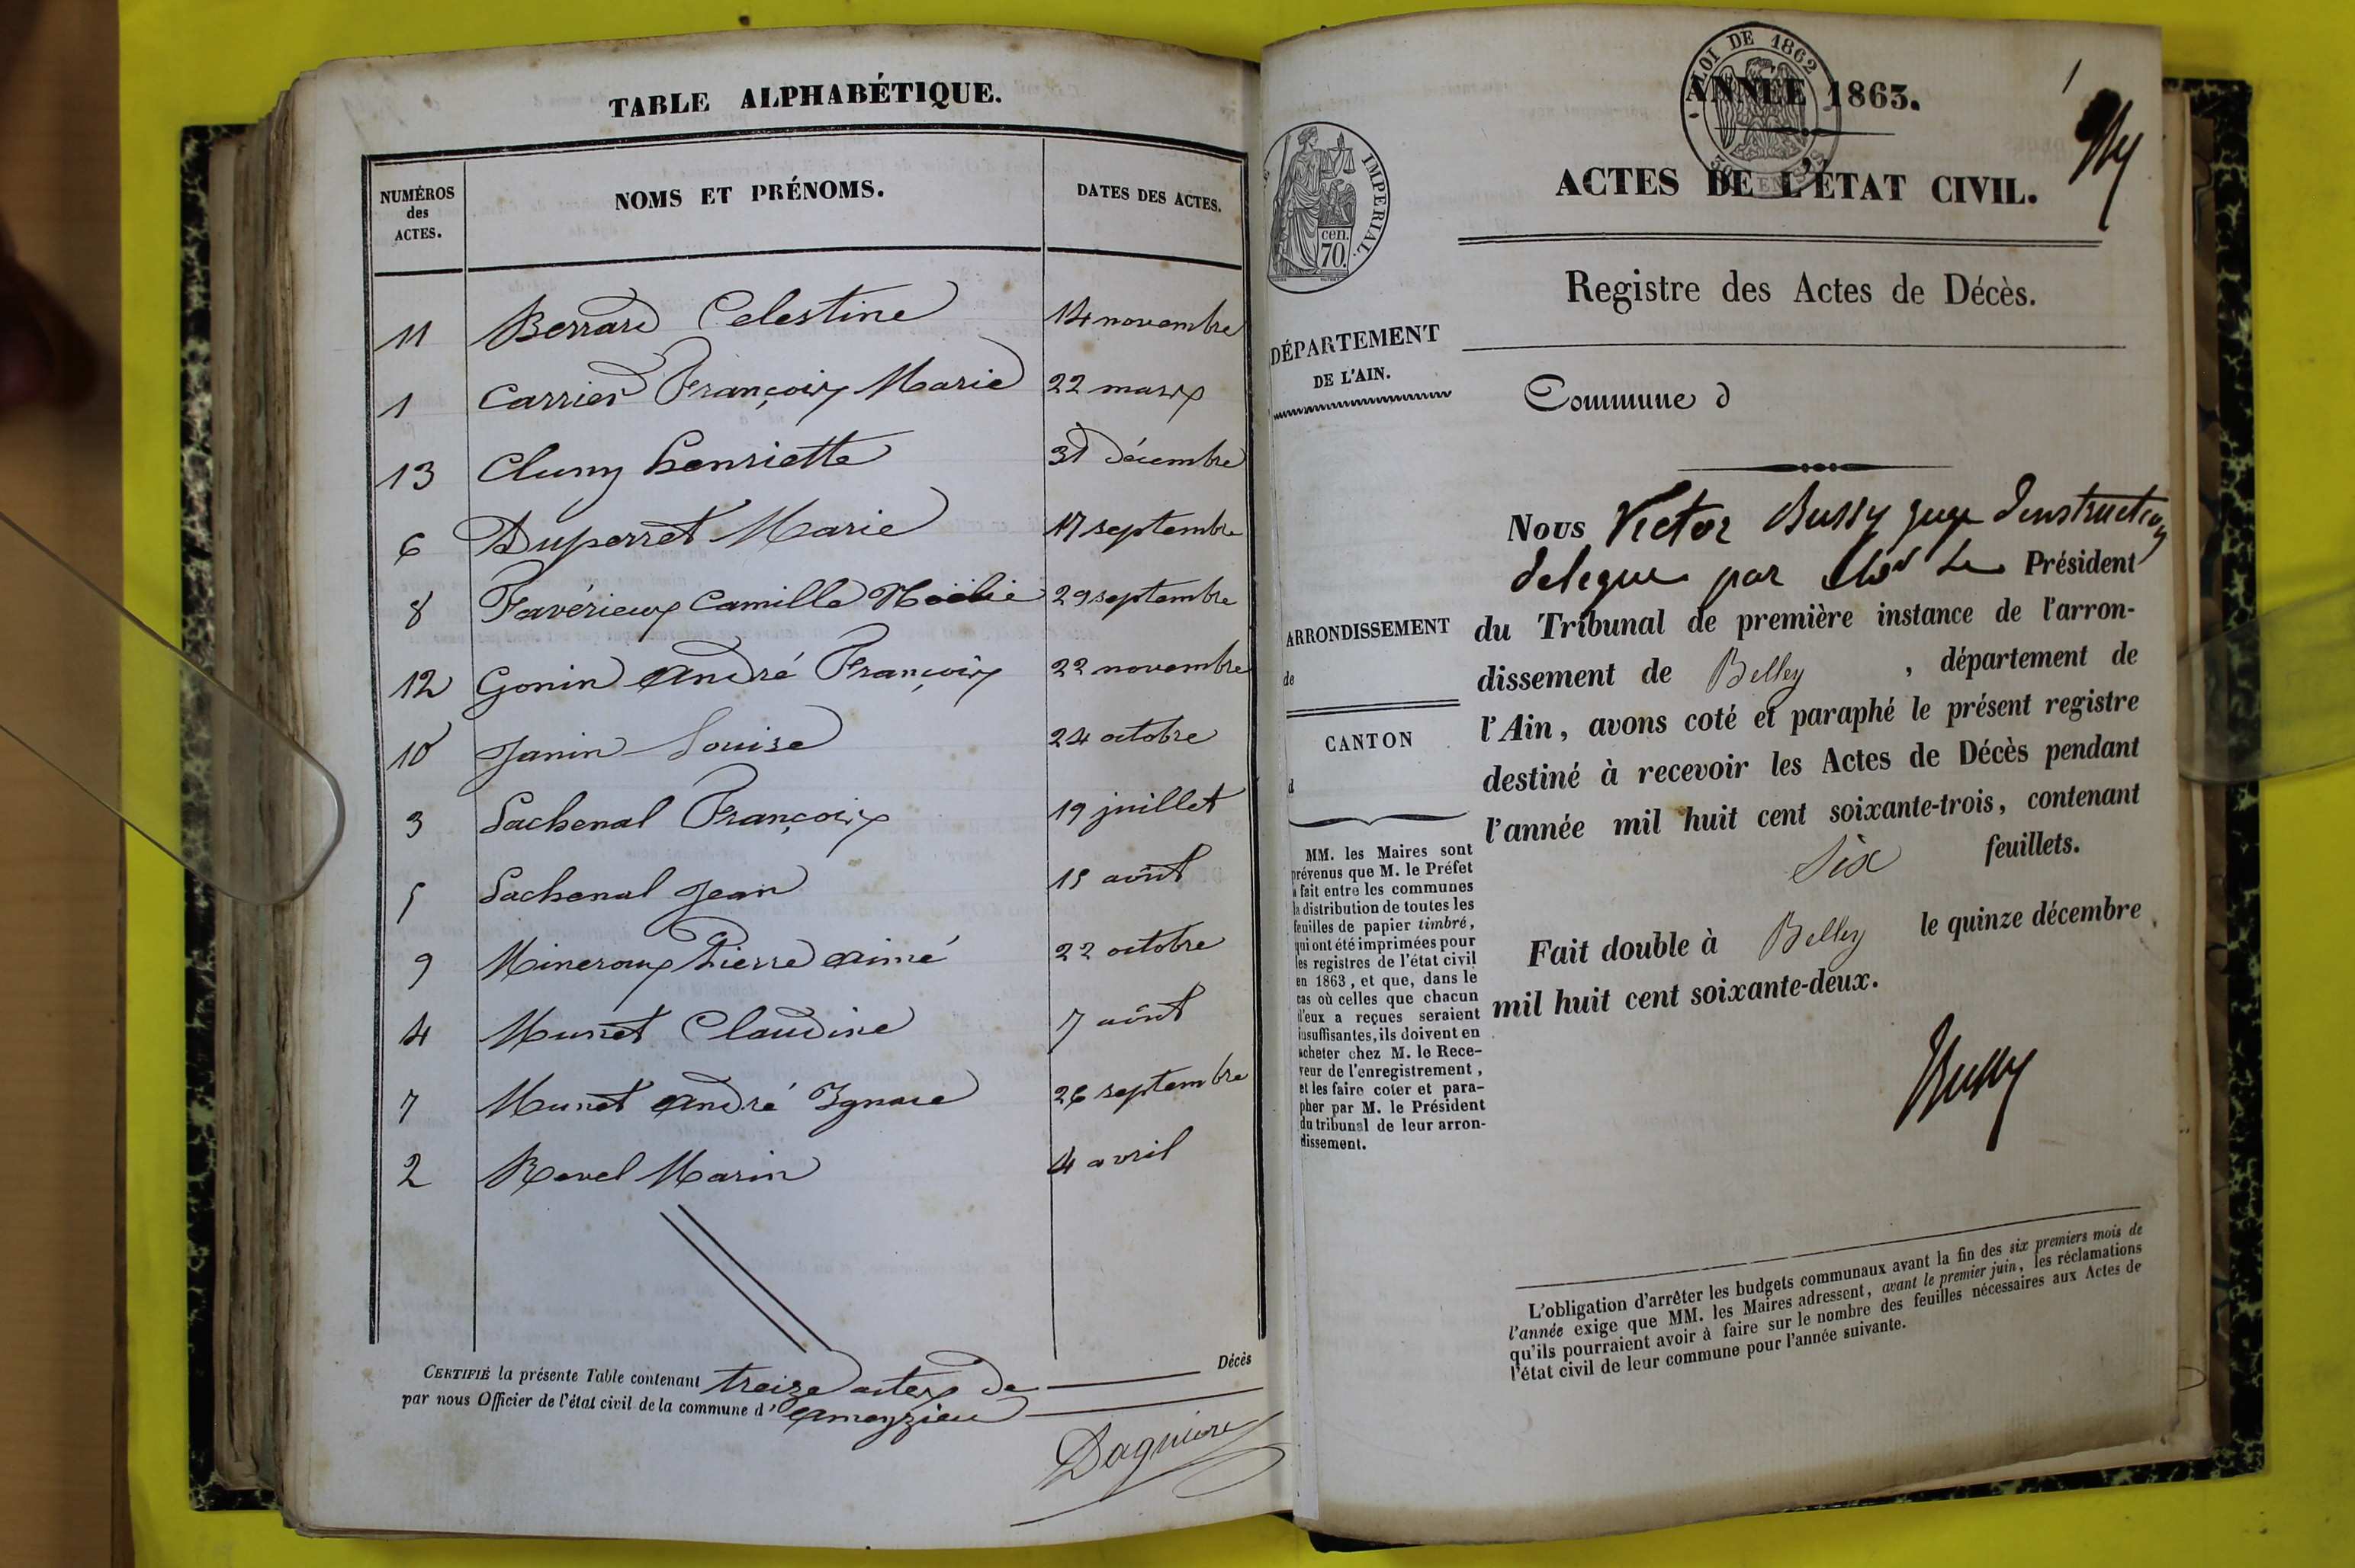 TABLE ALPHABÉTIQUE.
NUMÉROS
des
ACTES.
NOMS ET PRÉNOMS.
DATES DES ACTES.
11 Berrard Celestine 14 novembre
1 Carrier François Marie 22 mars
13 Cluny henriette 31 décembre
6 Duperret Marie 17 septembre
8 Favérieux Camille 29 septembre
12 Gonin andré François 22 novembre
10 Janin Louise 24 octobre
3 Lachenal François 19 juillet
5 Lachenal Jean 15 août
9 Mineroux Pierre aimé 22 octobre
4 Munet Claudine 7 août
7 Munet andré Ignace 26 septembre
2 Revel Marin 4 avril
CERTIFIÉ la présente Table contenant treize actes de Décès
par nous Officier de l'état civil de la commune d' ameyzieu
LOI DE 1862
ANNÉE 1863.
1
ACTES DE L'ÉTAT CIVIL.
IMPERIAL.
cen.
70.
Registre des Actes de Décès.
DÉPARTEMENT
DE L'AIN.
Commune d
Nous Victor Bussy juge d'instruction
delegue par Le Président
du Tribunal de première instance de l'arron-
dissement de Belley , département de
l'Ain, avons coté et paraphé le présent registre
destiné à recevoir les Actes de Décès pendant
l'année mil huit cent soixante-trois, contenant
six feuillets.
Fait double à Belley le quinze décembre
mil huit cent soixante-deux.
Bussy
ARRONDISSEMENT
de
CANTON
d
MM. les Maires sont
prévenus que M. le Préfet
a fait entre les communes
la distribution de toutes les
feuilles de papier timbré,
qui ont été imprimées pour
les registres de l'état civil
en 1863, et que, dans le
cas où celles que chacun
d'eux a reçues seraient
insuffisantes, ils doivent en
acheter chez M. le Rece-
veur de l'enregistrement,
et les faire coter et para-
pher par M. le Président
du tribunal de leur arron-
dissement.
L'obligation d'arrêter les budgets communaux avant la fin des six premiers mois de
l'année exige que MM. les Maires adressent, avant le premier juin, les réclamations
qu'ils pourraient avoir à faire sur le nombre des feuilles nécessaires aux Actes de
l'état civil de leur commune pour l'année suivante.